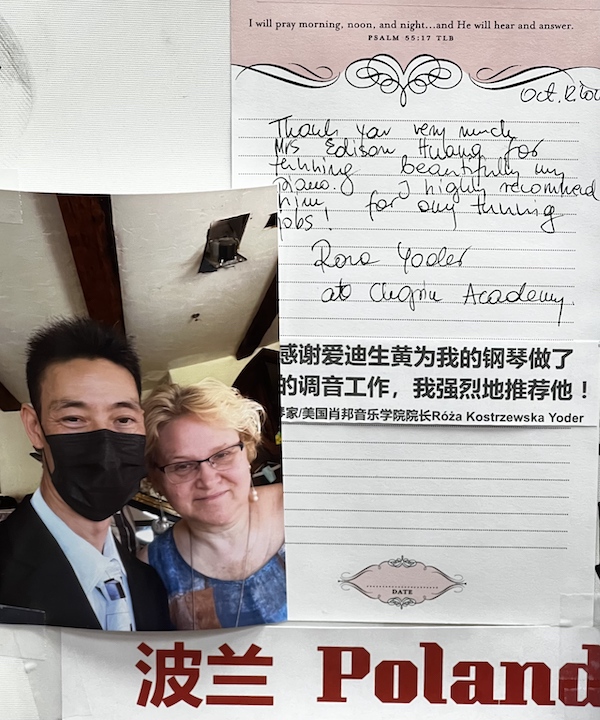 I will pray morning, noon, and night...and He will hear and answer.
PSALM 55:17 TLB
Oct. 12
Thank you very much
Mrs Edison Huang for
beautifully my
piano. I highly recommend
him for any tunning
jobs!
Roza Yoder
Academy.
感谢爱迪生黄为我的钢琴做了
的调音工作，我强烈地推荐他！
琴家/美国肖邦音乐学院院长Róża Kostrzewska Yoder
DATE
波兰 Poland